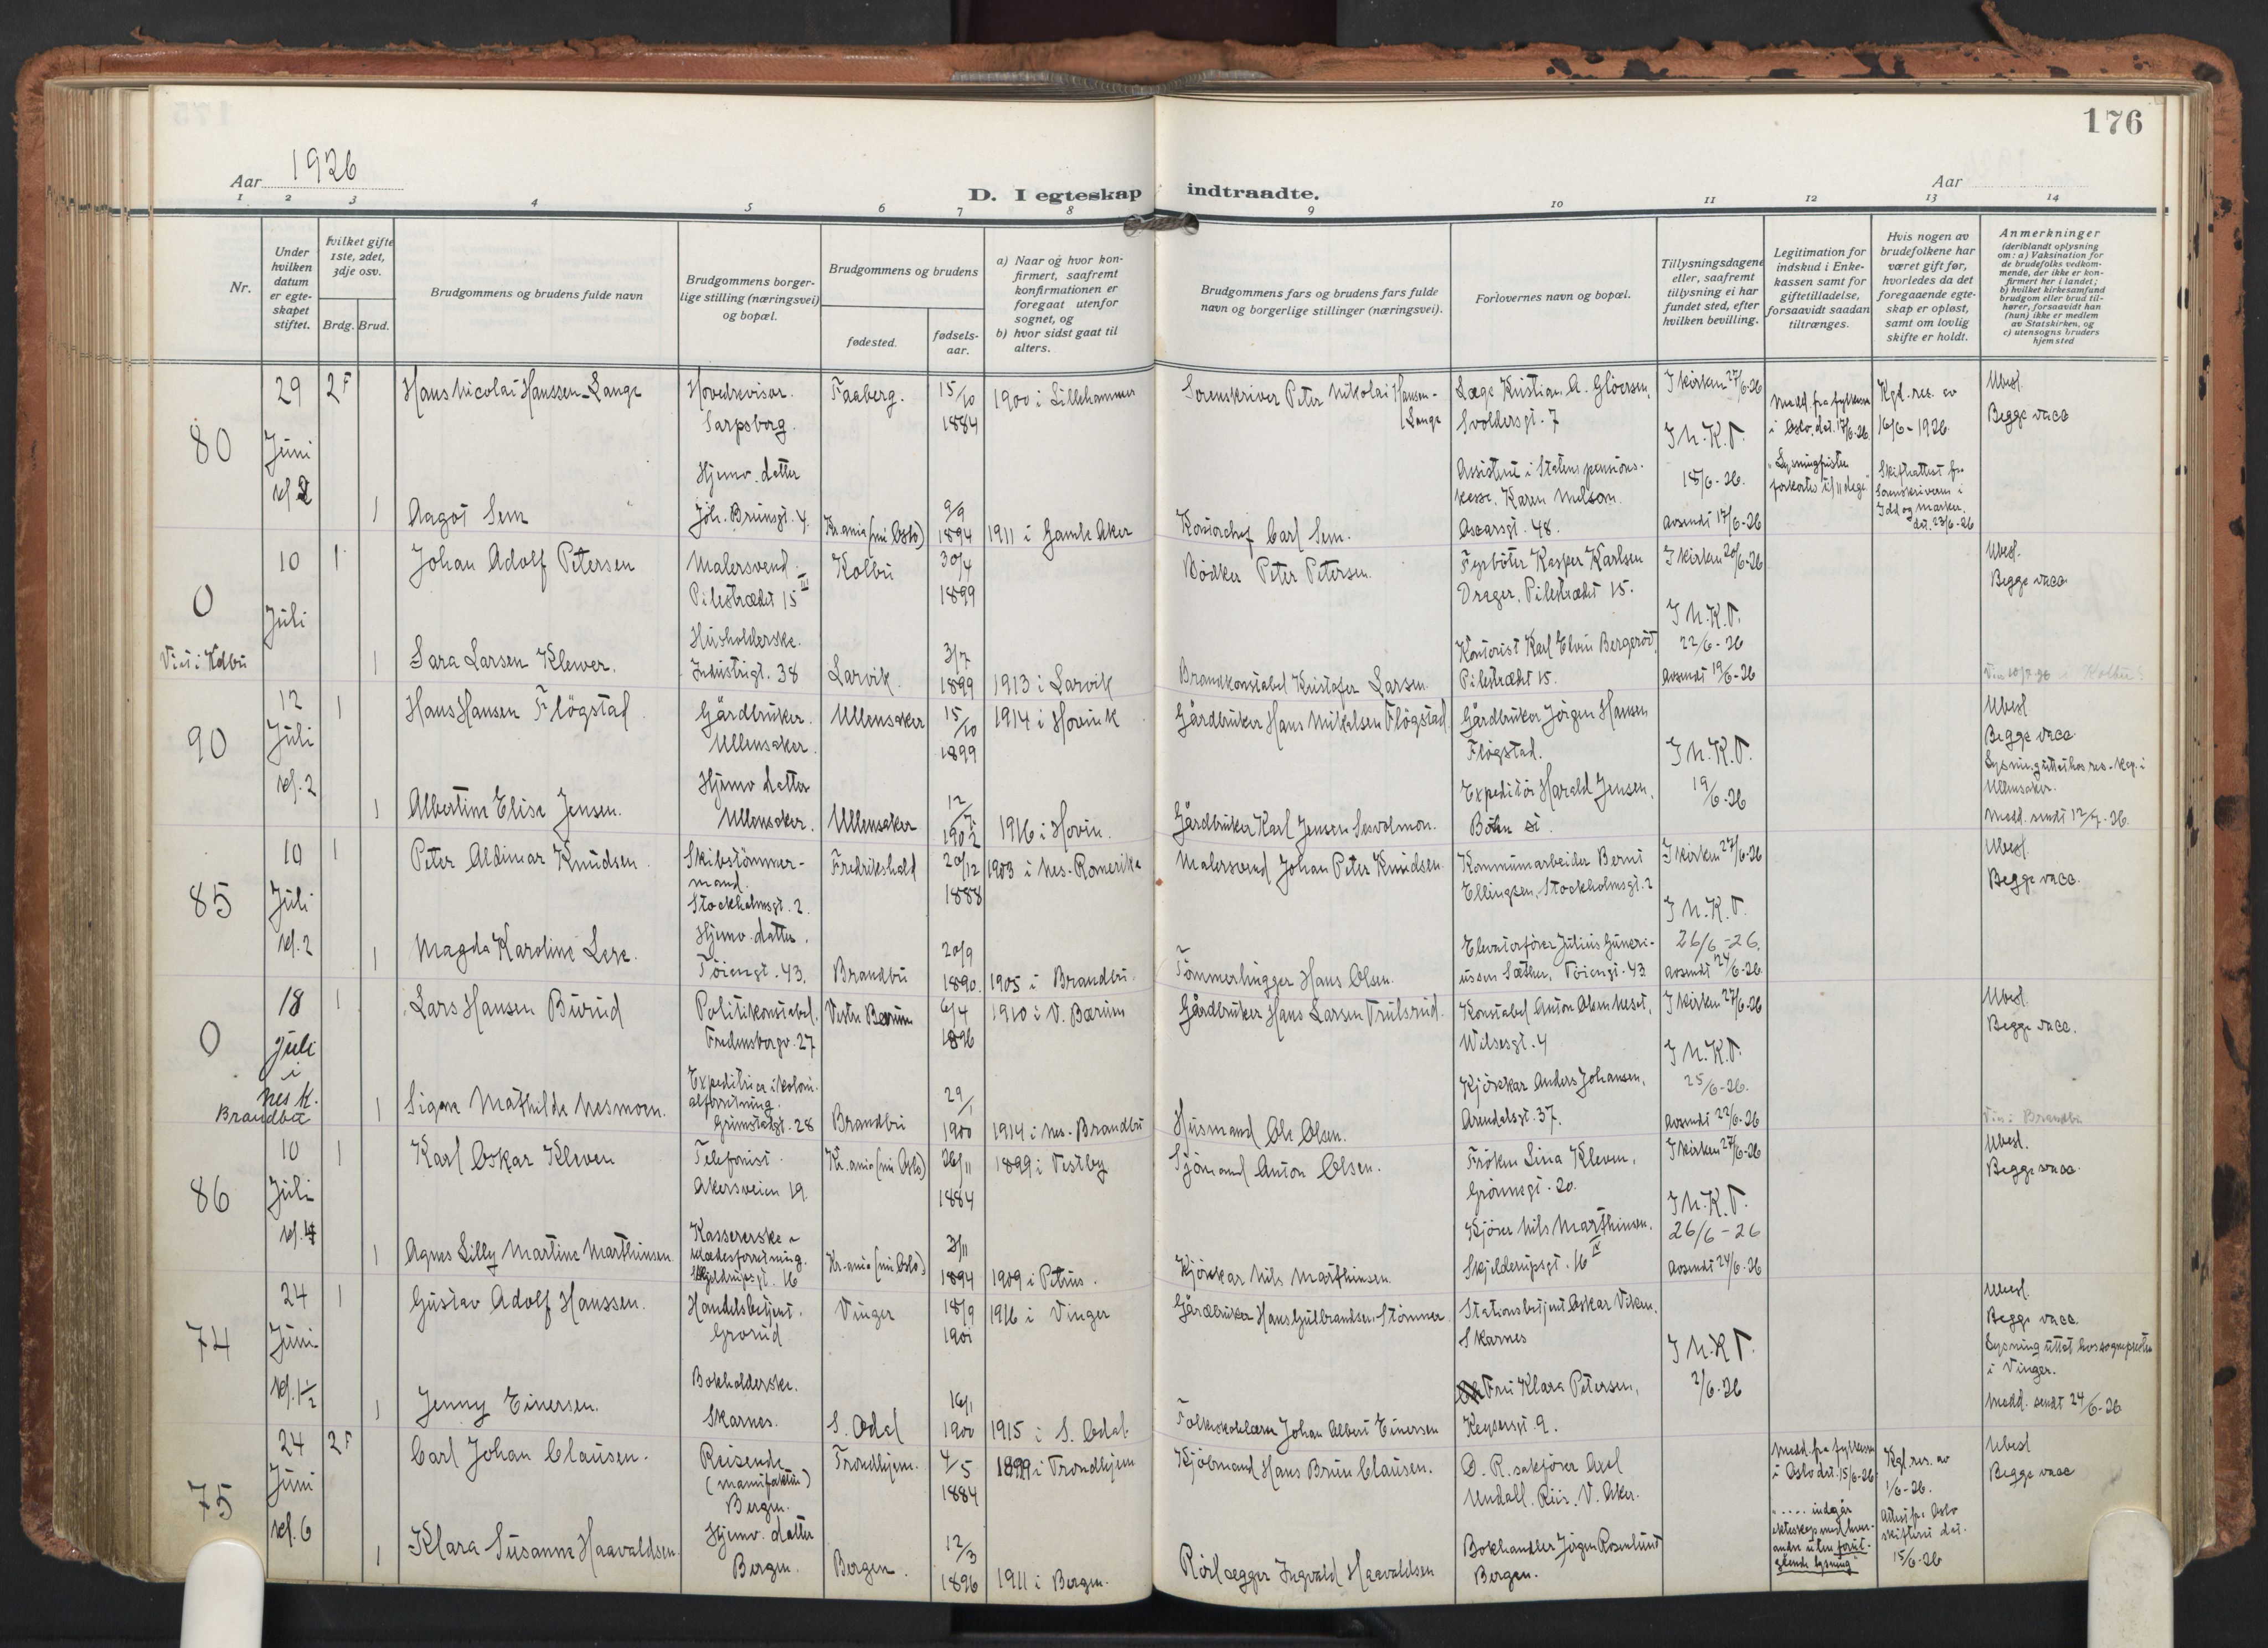 176
Aar 1926
D. I egteskap indtraadte.
Aar
1 2 3 4 5 6 7 8 9 10 11 12 13 14
Nr.
Under hvilken datum er egteskapet stiftet.
hvilket gifte 1ste, 2det, 3dje osv.
Brdg. Brud.
Brudgommens og brudens fulde navn
Brudgommens borgerlige stilling (næringsvei) og bopæl.
Brudgommens og brudens
fødested.
fødselsaar.
a) Naar og hvor konfirmert, saafremt konfirmationen er foregaat utenfor sognet, og
b) hvor sidst gaat til alters.
Brudgommens fars og brudens fars fulde navn og borgerlige stillinger (næringsvei).
Forlovernes navn og bopæl.
Tillysningsdagene eller, saafremt tillysning ei har fundet sted, efter hvilken bevilling.
Legitimation for indskud i Enkekassen samt for giftetilladelse, forsaavidt saadan tiltrænges.
Hvis nogen av brudefolkene har været gift før, hvorledes da det foregaaende egteskap er opløst, samt om lovlig skifte er holdt.
Anmerkninger
(deriblandt oplysning om: a) Vaksination for de brudefolks vedkommende, der ikke er konfirmert her i landet; b) hvilket kirkesamfund brudgom eller brud tilhører, forsaavidt han (hun) ikke er medlem av Statskirken, og c) utensogns bruders hjemsted
80
29 Juni kl. 2
2 F
Hans Nicolai Hanssen-Lange
Hovedrevisor. Sarpsborg.
Faaberg.
15/10 1884
1900 i Lillehammer
Sorenskriver Peter Nikolai Hansen-Lange
Læge Kristian A. Glöersen, Svoldersgt. 7
I kirken 27/6-26
I N.K.T. 18/6-26.
avsendt 17/6-26
Medd. fra fylkesm. i Oslo, dat. 17/6-26.
"Lysningsfristen forkortes til 11 dage."
Kgl. res. av 16/6-1926
Skifteattest fra Sorenskriveren i Idd og Marker. dat. 23/6-26
Ubesl.
Begge vacc
1
Aagot Sem
Hjemv. datter
Joh. Brunsgt. 4.
Kr.ania (nu Oslo)
9/9 1894
1911 i Gamle Aker
Kontorchef Carl Sem.
Assistent i Statens pensionskasse. Karen Nelson.
Oscarsgt. 48.
0
Viet i Kolbu
10 Juli
1
Johan Adolf Petersen
Malersvend. Pilestrædet 15 III
Kolbu
30/4 1899
Bödker Peter Petersen.
Fyrböter Kasper Karlsen Drager. Pilestrædet 15.
I kirken 20/6-26
I N.K.T. 22/6-26
avsendt 19/6-26
Ubesl.
Begge vacc
1
Sara Larsen Klewer.
Husholderske. Industrigt. 38
Larvik.
3/7 1899
1913 i Larvik
Brandkonstabel Kristofer Larsen.
Kontorist Karl Elvin Bergeröd, Pilestrædet 15.
90
12 Juli kl. 2
1
Hans Hansen Flögstad
Gårdbruker. Ullensaker.
Ullensaker
15/10 1899
1914 i Hovin K
Gårdbruker Hans Mikalsen Flögstad
Gårdbruker Jörgen Hansen Flögstad.
I N.K.T. 19/6-26
Ubesl
Begge vacc.
Lysning uttat hos res. kap. i Ullensaker.
Medd. sendt 12/7-26.
1
Albertine Elise Jensen.
Hjemv datter Ullensaker.
Ullensaker
12/7 1902
1916 i Hovin.
Gårdbruker Karl Jensen
Expeditör Harald Jensen,
85
10 Juli kl. 2
1
Peter Aldimar Knudsen.
Skibstömmermand. Stockholmsgt. 2.
Fredrikshald
20/12 1888
1903 i Nes-Romerike
Malersvend Johan Peter Knudsen
Kommunearbeider Bernt Ellingsen, Stockholmsgt. 2
I kirken 27/6-26
I N.K.T. 26/6-26.
avsendt 24/6-26
Ubesl.
Begge vacc.
1
Magda Karoline Lere.
Hjemv. datter. Töiengt. 43.
Brandbu
20/9 1890.
1905 i Brandbu.
Tömmerhugger Hans Olsen.
Elevatorförer Julius Guneriussen Sæther, Töiengt. 43
0
18 Juli i Nes K. Brandbu
1
Lars Hansen Burud
Politikonstabel. Fredensborgv. 27
Vestre Bærum
6/4 1896
1910 i V. Bærum
Gårdbruker Hans Larsen Trulsrud.
Konstabel Anton Olsen Neset, Wilsesgt. 4
I kirken 27/6-26
I N.K.T. 25/6-26.
avsendt 22/6-26
Ubesl.
Begge vacc.
Viet i Brandbu
1
Signe Mathilde Nesmoen.
Expeditrice i kolonialforretning. Grimstadgt. 28
Brandbu
29/1 1900
1914 i Nes-Brandbu
Husmand Ole Olsen.
Kjörekar Anders Johansen, Arendalsgt. 37.
86
10 Juli kl. 4
1
Karl Oskar Kleven
Telefonist. Akersveien 19.
Kr.ania (nu Oslo)
26/11 1884
1899 i Vestby
Sjömand Anton Olsen.
Fröken Lina Kleven, Grönnegt. 20.
I kirken 27/6-26
I N.K.T. 26/6-26
avsendt 24/6-26
Ubesl.
Begge vacc.
1
Agnes Lilly Martine Marthinsen.
Kassererske klædesforretning. Skjelderupsgt. 16
Kr.ania (nu Oslo)
3/11 1894
1909 i Petrus.
Kjörekar Nils Marthinsen
Kjörer Nils Marthinsen. Skjelderupsgt. 16 IV
74
24 Juni kl. 1½
1
Gustav Adolf Hanssen.
Handelsbetjent. Grorud
Vinger
18/9 1901
1916 i Vinger
Gårdbruker Hans Gulbrandsen Stömner
Stationsbetjent Oskar Viken. Skarnes
I N.K.T. 2/6-26
Ubesl.
Begge vacc.
Lysning uttat hos sognepresten i Vinger.
Medd. sendt 24/6-26
1
Jenny Einersen.
Bokholderske. Skarnes.
S. Odal
16/1 1900
1915 i S. Odal
Folkeskolelærer Johan Albert Einersen
Fru Klara Petersen, Keysersgt. 9.
75
24 Juni kl. 6
2 F
Carl Johan Clausen.
Reisende (manufaktur) Bergen.
Trondhjem.
4/5 1884
1899 i Trondhjem
Kjöbmand Hans Brun Clausen.
O. R. sakförer Axel Undall. Riis. V. Aker.
Medd. fra fylkesm. i Oslo dat. 15/6-26.
"..... indgår ekteskap med hverandre uten forutgående lysning"
Kgl. res. av 1/6-26.
Attest fra Oslo skifteret dat. 15/6-26
Ubesl
Begge vacc
1
Klara Susanna Haavaldsen.
Hjemv. datter Bergen.
Bergen.
12/3 1896
1911 i Bergen.
Rörlægger Ingvald Haavaldsen
Bokhandler Jörgen Rosenlund Bergen.